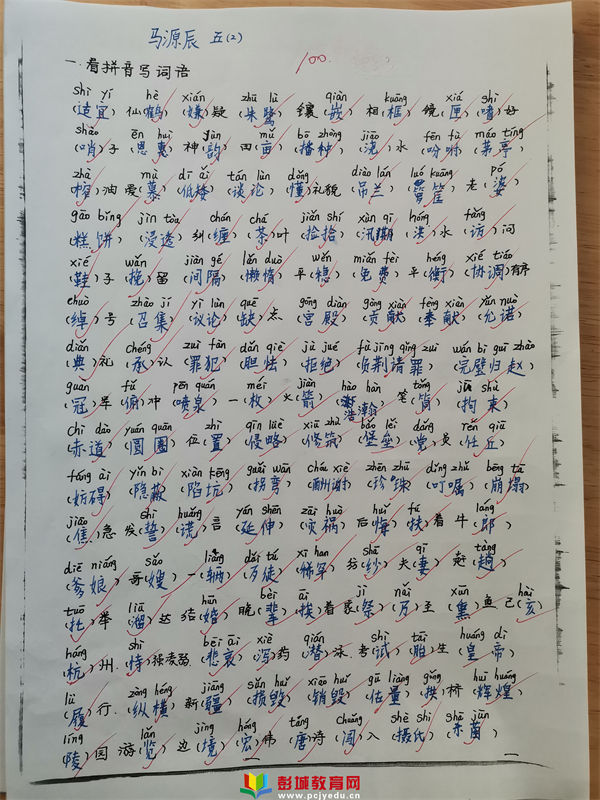 马源辰 五(2)
100.
一.看拼音写词语
shì yí hè xián zhū lù qiàn kuāng xiá shì
(适宜) 仙(鹤) (嫌)疑 (朱鹭) 镶(嵌) 相(框) 镜(匣) (嗜)好
shào ēn huì yùn mǔ bō zhǒng jiāo fēn fù máo tíng
(哨)子 (恩惠) 神(韵) 田(亩) (播种) (浇)水 (吩咐) (茅亭)
zhà mù dī ǎi tán lùn dǒng diào lán luó kuāng pó
(榨)油 爱(慕) (低矮) (谈论) (懂)礼貌 (吊兰) (箩筐) 老(婆)
gāo bǐng jìn tòu chán chá jiǎn shí xùn qī hóng fǎng
(糕饼) (浸透) 纠(缠) (茶)叶 (捡拾) (汛期) (洪)水 (访)问
xié wǎn jiàn gé lǎn duò wěn miǎn fèi héng xié tiáo
(鞋)子 (挽)留 (间隔) (懒惰) 平(稳) (免费) 平(衡) (协调)有序
chuò zhào jí yì lùn quē gōng diàn gòng xiàn fèng xiàn yǔn nuò
(绰)号 (召集) (议论) (缺)点 (宫殿) (贡献) (奉献) (允诺)
diǎn chéng zuì fàn dǎn qiè jù jué fù jīng qǐng zuì wán bì guī zhào
(典)礼 (承)认 (罪犯) (胆怯) (拒绝) (负荆请罪) (完璧归赵)
guàn fǔ pēn quán méi jiàn hào hàn tǒng jū shù
(冠)军 (俯)冲 (喷泉) 一(枚) 火(箭) (浩瀚) 笔(筒) (拘束)
chì dào yuán quān zhì qīn lüè xiū zhù bǎo lěi dǎng rén qiū
(赤道) (圆圈) 位(置) (侵略) (修筑) (堡垒) (党)员 (任丘)
fáng ài yǐn bì xiàn kēng guǎi wān chóu xiè zhēn zhū dīng zhǔ bēng tā
(妨碍) (隐蔽) (陷坑) (拐弯) (酬谢) (珍珠) (叮嘱) (崩塌)
jiāo shì huǎng yán shēn zāi huò huǐ fú láng
(焦)急 发(誓) (谎)言 (延伸) (灾祸) 后(悔) (扶)着 牛(郎)
diē niáng sǎo liàng dǎi tú xī han shā qī tàng
(爹娘) 哥(嫂) 一(辆) (歹徒) (稀罕) 纺(纱) 夫(妻) 赶(趟)
tuō liū hūn bèi āi jì nǎi xūn hài
(托)举 (溜)达 结(婚) 晚(辈) (挨)着 祭(祭) (乃)至 (熏)鱼 己(亥)
háng shì bēi āi xiè qián shì tāi huáng dì
(杭)州 (恃)强凌弱 (悲哀) (泻)药 (潜)泳 考(试) (胎)生 (皇帝)
lǚ zòng héng jiāng sǔn huǐ xiāo huǐ gū liáng gǒng huī huáng
(履)行 (纵横) 新(疆) (损毁) (销毁) (估量) (拱)桥 (辉煌)
líng lǎn jìng hóng táng chuǎng shè shì shā jūn
(陵)园 游(览) 边(境) (宏)伟 (唐)诗 (闯)入 (摄氏) (杀菌)
彭城教育网
www.pcjyedu.cn